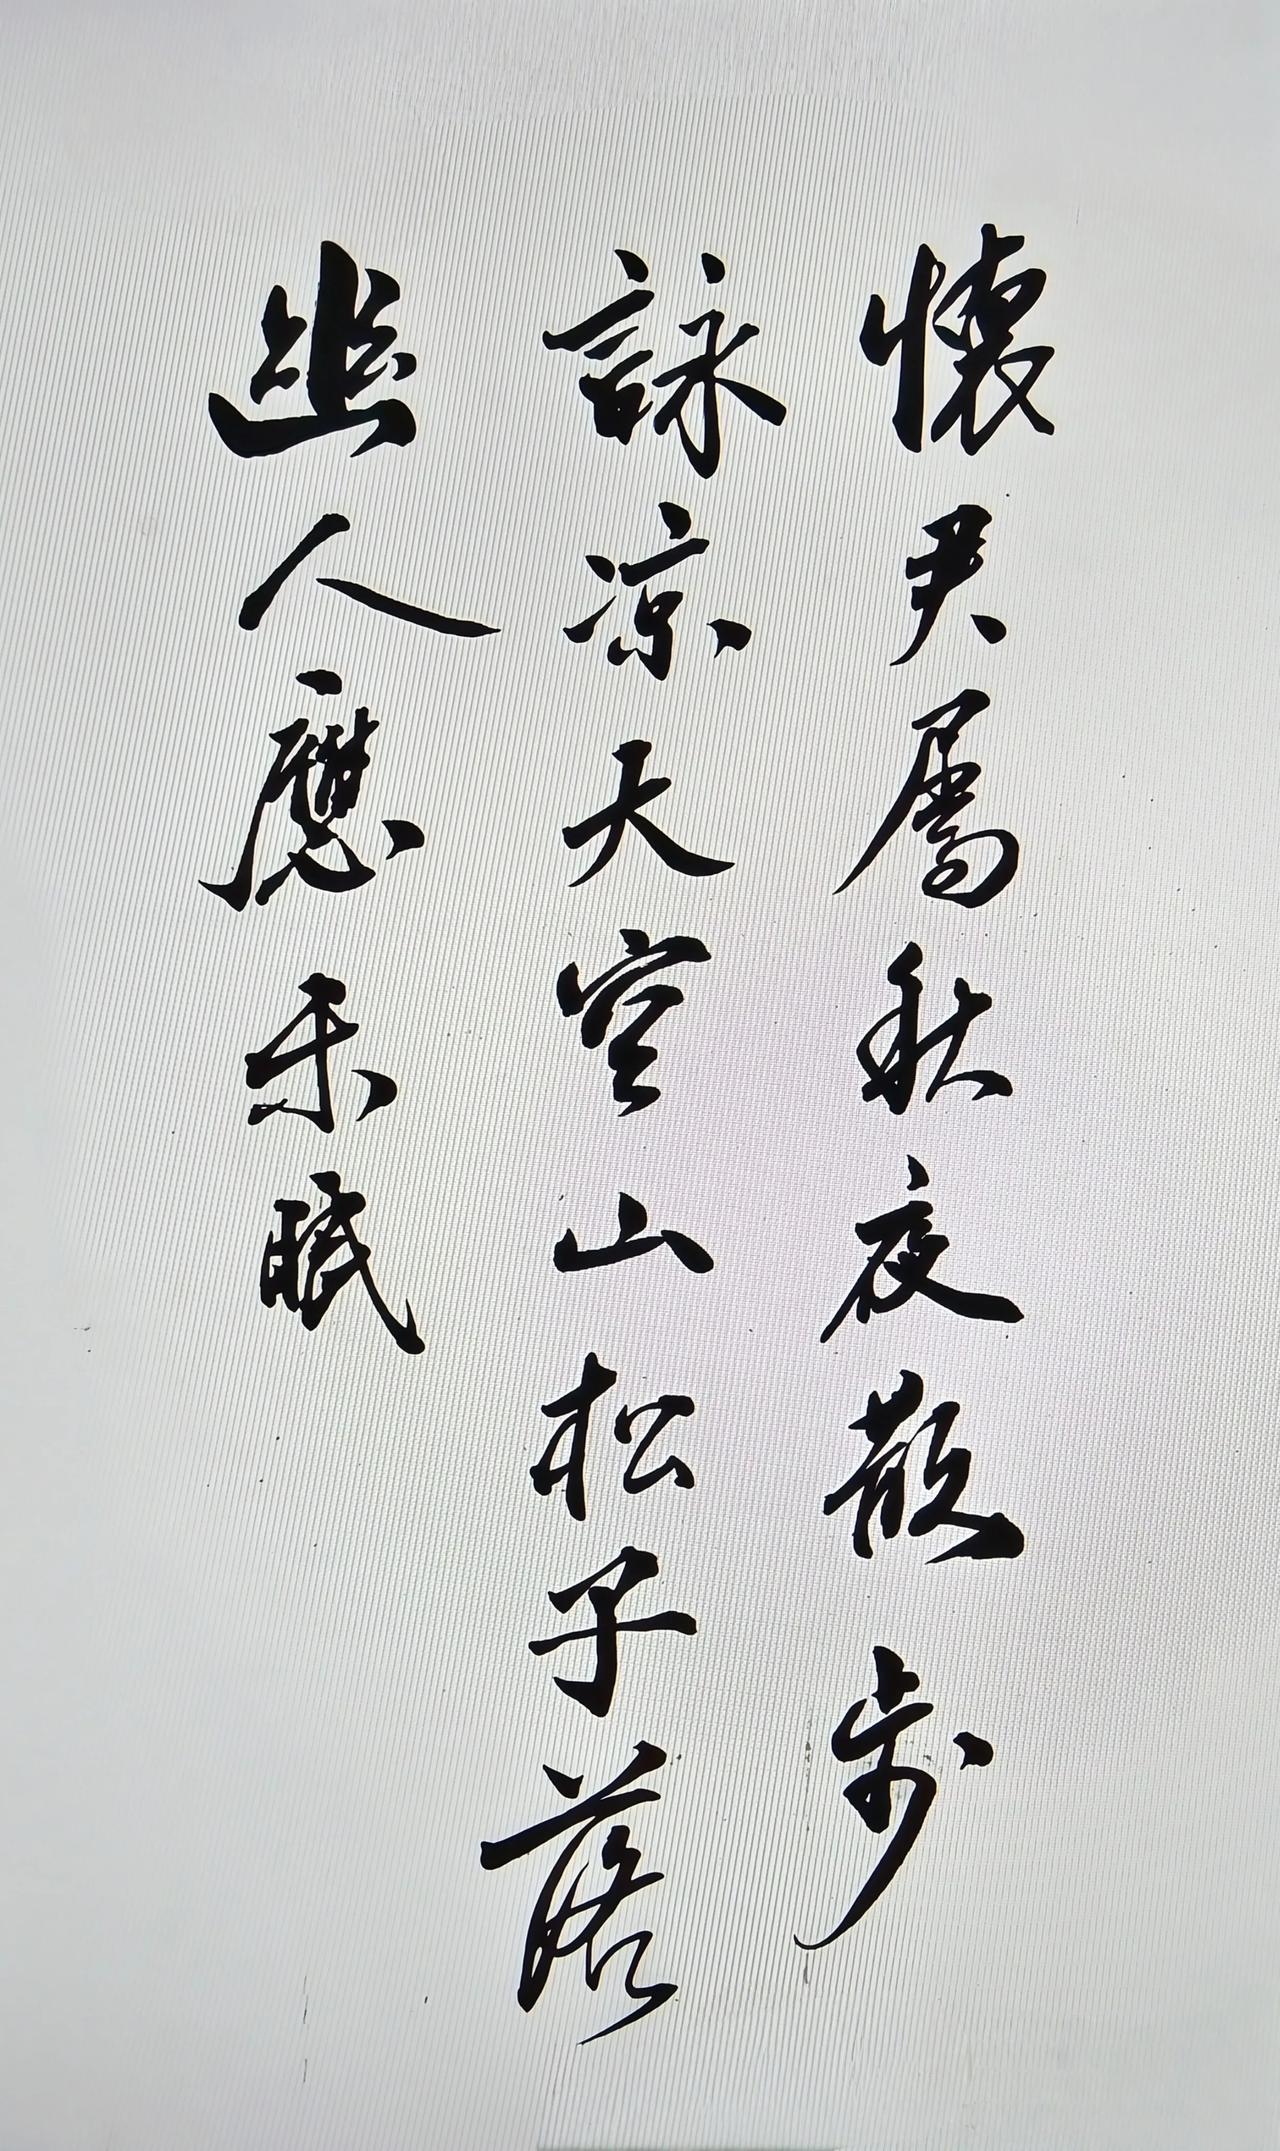 懷君屬秋夜散步
詠凉天空山松子落
幽人應未眠